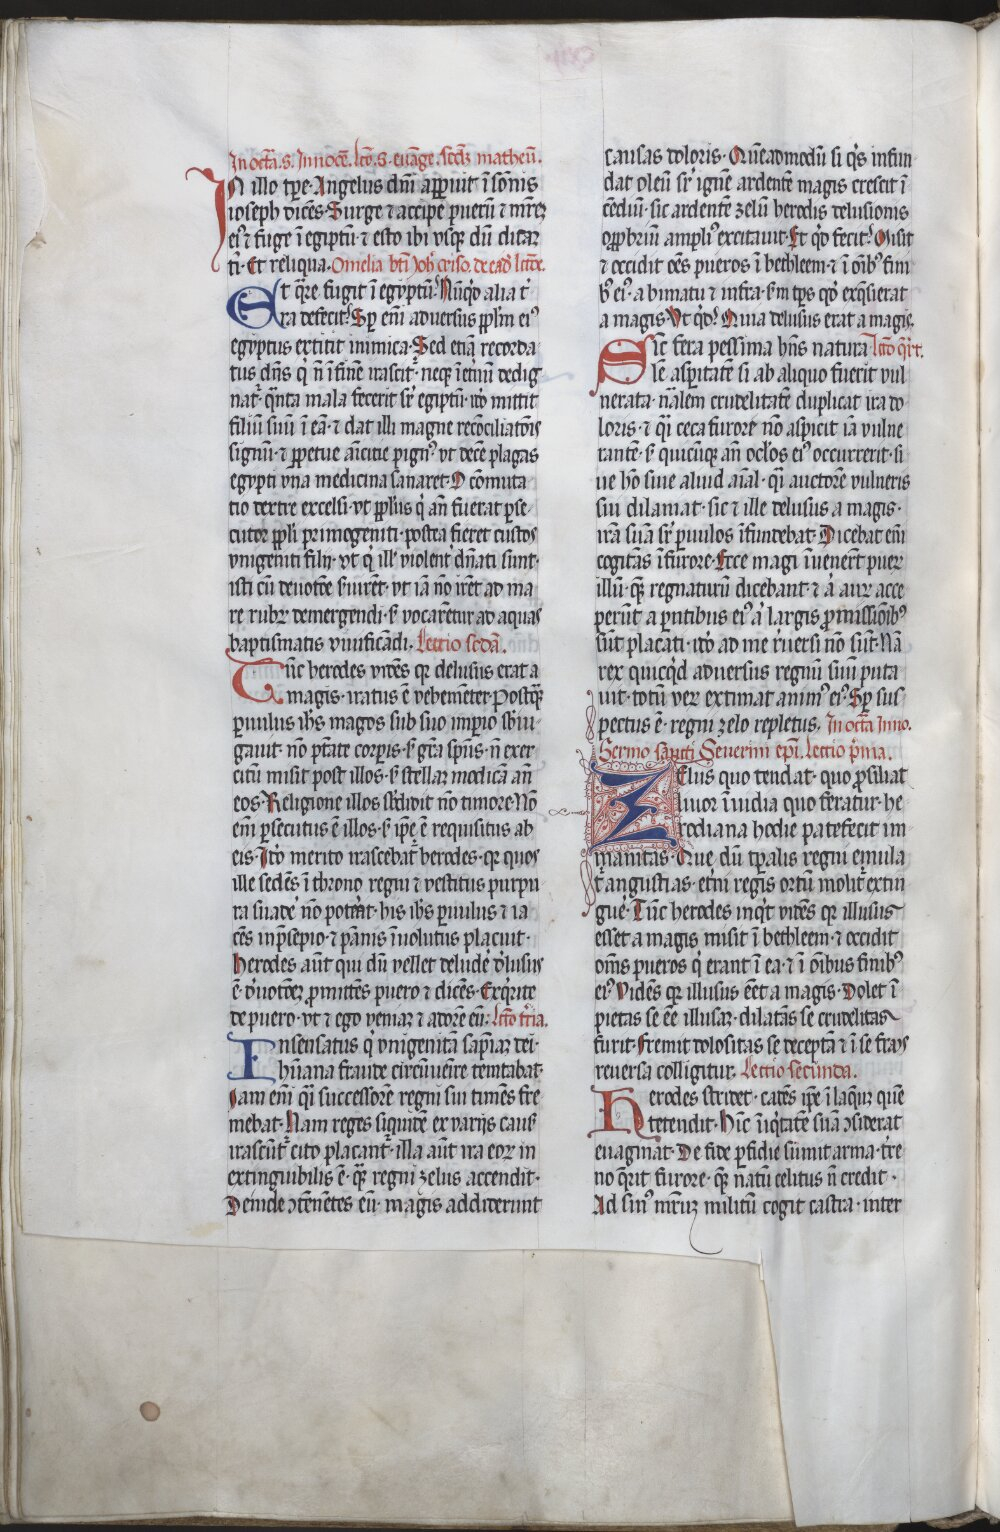 In octã. s. Innocẽ. lco. s. euãge. scdʒ matheũ.
IN illo tp̃e. Angelus dñi apparuit ĩ sõnis
ioseph dicẽs. Surge ⁊ accipe puerũ ⁊ mr̃eʒ
eiꝰ ⁊ fuge ĩ egiptũ. ⁊ esto ibi vsqʒ dũ dicaʒ
ti. Et reliqua. Omelia bt̃i Joh̃ criso. de eadẽ lcõe.
Et q̃re fugit ĩ egyptũ? Nũq̃d alia t̾
ra defecit? Sꝑ eñi aduersus ppl̃m eiꝰ
egyptus extitit inimica. Sed etiã recorda
tus dñs q̇ ñ ĩ fine irascit᷑. neqʒ ĩ et̾nũ dedig
nat᷑. q̃nta mala fecerit sr̃ egiptũ. iõ mittit
filiũ suũ ĩ eã. ⁊ dat illi magne recõciliatõis
signũ. ⁊ ꝑpetue aĩcitie pignꝰ. vt decẽ plagas
egypti vna medicina sanaret. O cõmuta
tio dextre excelsi. vt ppl̃us q̇ añ fuerat ꝑse
cutor ppl̃i primogeniti. postea fieret custos
vnigeniti filij. vt q̇ ill̾ violent̾ dñati sunt.
isti cũ deuotõe s̾uirẽt. vt iã nõ irẽt ad ma
re rubꝝ demergendi. s̾ vocarẽtur ad aquas
baptismatis viuificãdi. Lectio secdã.
Tũc herodes vidẽs qꝫ delusus erat a
magis. iratus ẽ vehemẽter. Postq̃ʒ
ꝑuulus ih̃s magos sub suo impio sbiu-
gauit. nõ ptãte corpis. s̾ gr̃a spũs. ñ exer
citũ misit post illos. s̾ stellaʒ modicã añ
eos. Religione illos s̾didit nõ timore. Nõ
eñi ꝑsecutus ẽ illos. s̾ ip̃e ẽ requisitus ab
eis. Iõ merito irascebat᷑ herodes. qꝫ quos
ille sedẽs ĩ throno regni ⁊ vestitus purpu
ra suade̾ nõ pot̾at. his ih̃s ꝑuulus ⁊ ia
cẽs inp̃sepio. ⁊ pãnis ĩuolutus placuit.
Herodes aũt qui dũ vellet delude̾ d̾lusus
ẽ. d̾uotõeʒ promittẽs puero ⁊ dicẽs. Exq̃rite
de puero. vt ⁊ ego veniaʒ ⁊ adorẽ eũ. lcõ t̾tia.
Insensatus q̇ vnigenitã sapiãʒ dei.
hũana fraude circũuẽire temtabat.
Iam eñi q̃i successorẽ regni sui timẽs fre
mebat. Nam reges siquidẽ ex varijs causʼ
irascũt᷑ cito placant᷑. illa aũt ira eoꝝ in
extinguibilis ẽ. q̃ʒ regni zelus accendit.
Deinde ↄtẽnẽtes eũ. magis addiderunt
causas doloris. Quẽadmodũ si q̇s infun
dat oleũ sr̃ ignẽ ardentẽ magis crescit ĩ
cẽdiũ. sic ardentẽ zelũ herodis delusionis
opprobriũ ampliꝰ excitauit. Et q̃d fecit? Misit
⁊ occidit oẽs pueros ĩ bethleem. ⁊ ĩ oĩbꝰ fini
bꝰ eiꝰ. a bimatu ⁊ infra. s̾m tp̃s qd̾ exq̃sierat
a magis. Vt q̃d? Quia delusus erat a magis.
Sic fera pessima hñs natura- lcõ q̃rt̾.
lẽ aspitatẽ si ab aliquo fuerit vul
nerata. nãlem crudelitatẽ duplicat ira do
loris. ⁊ q̃i ceca furore nõ aspicit iã vulne
rantẽ. s̾ quicũqʒ añ ocl̾os eiꝰ occurrerit. si
ue hõ siue aliud aĩal. q̃i auctorẽ vulneris
sui dilaniat. sic ⁊ ille delusus a magis.
irã suã sr̃ ꝑuulos ĩfundebat. Dicebat eñi
cogitãs ĩ furore. Ecce magi ĩuenerũt puerʒ
illũ. q̃ʒ regnaturũ dicebant. ⁊ a̾ auꝝ acce
perũt a pñtibus eiꝰ a̾ largis ꝓmissiõibꝰ
sũt placati. iõ ad me r̾uersi nõ sũt. Nã
rex quicq̃d aduersus regnũ suũ puta
uit. totũ veꝝ extimat animꝰ eiꝰ. Sꝑ sus
pectus ẽ. regni zelo repletus. In octã Inno.
Sermo sancti Seuerini epĩ. Lectio p̾ma.
Zelus quo tendat. quo ꝓsiliat
liuor ĩuidia quo feratur. he
rodiana hodie patefecit im
manitas. Que dũ tp̃alis regni emula
t᷑ angustias. et̾ni regis ortũ molit᷑ extin
gue̾. Tũc herodes inq̇t vidẽs qꝫ illusus
esset a magis misit ĩ bethleem. ⁊ occidit
oms̃ pueros q̇ erant ĩ ea. ⁊ ĩ oĩbus finibꝰ
eiꝰ. Vidẽs qꝫ illusus eẽt a magis. Dolet ĩ
pietas se eẽ illusaʒ. dilatãs se crudelitas
furit. Fremit dolositas se deceptã ⁊ ĩ se fraus
reuersa colligitur. Lectio secũnda.
Herodes stridet. cadẽs ip̃e ĩ laq̃uʒ quẽ
tetendit. Hĩc ĩiq̃tatẽ suã ↄsiderat
euagĩnat. De fide ꝑfidie sũmit arma. t̾re
no q̃rit furore. q̃ʒ natũ celitus ñ credit.
Ad sinꝰ mr̃uʒ militũ cogit castra. inter